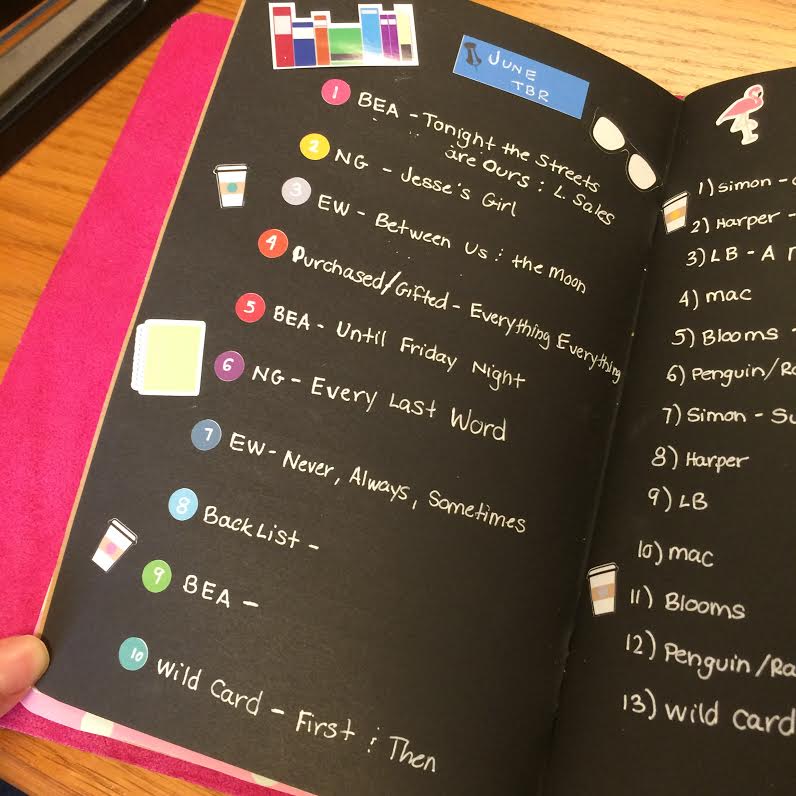 JUNE
TBR
1 BEA - Tonight the Streets
are Ours : L. Sales
2 NG - Jesse's Girl
3 EW - Between Us : the Moon
4 Purchased/Gifted - Everything Everything
5 BEA - Until Friday Night
6 NG - Every Last Word
7 EW - Never, Always, Sometimes
8 BackList -
9 BEA -
10 Wild Card - First : Then
1) Simon -
2) Harper -
3) LB - A
4) mac
5) Blooms -
6) Penguin/Ra
7) Simon - Su
8) Harper
9) LB
10) mac
11) Blooms
12) Penguin/Ra
13) Wild Card